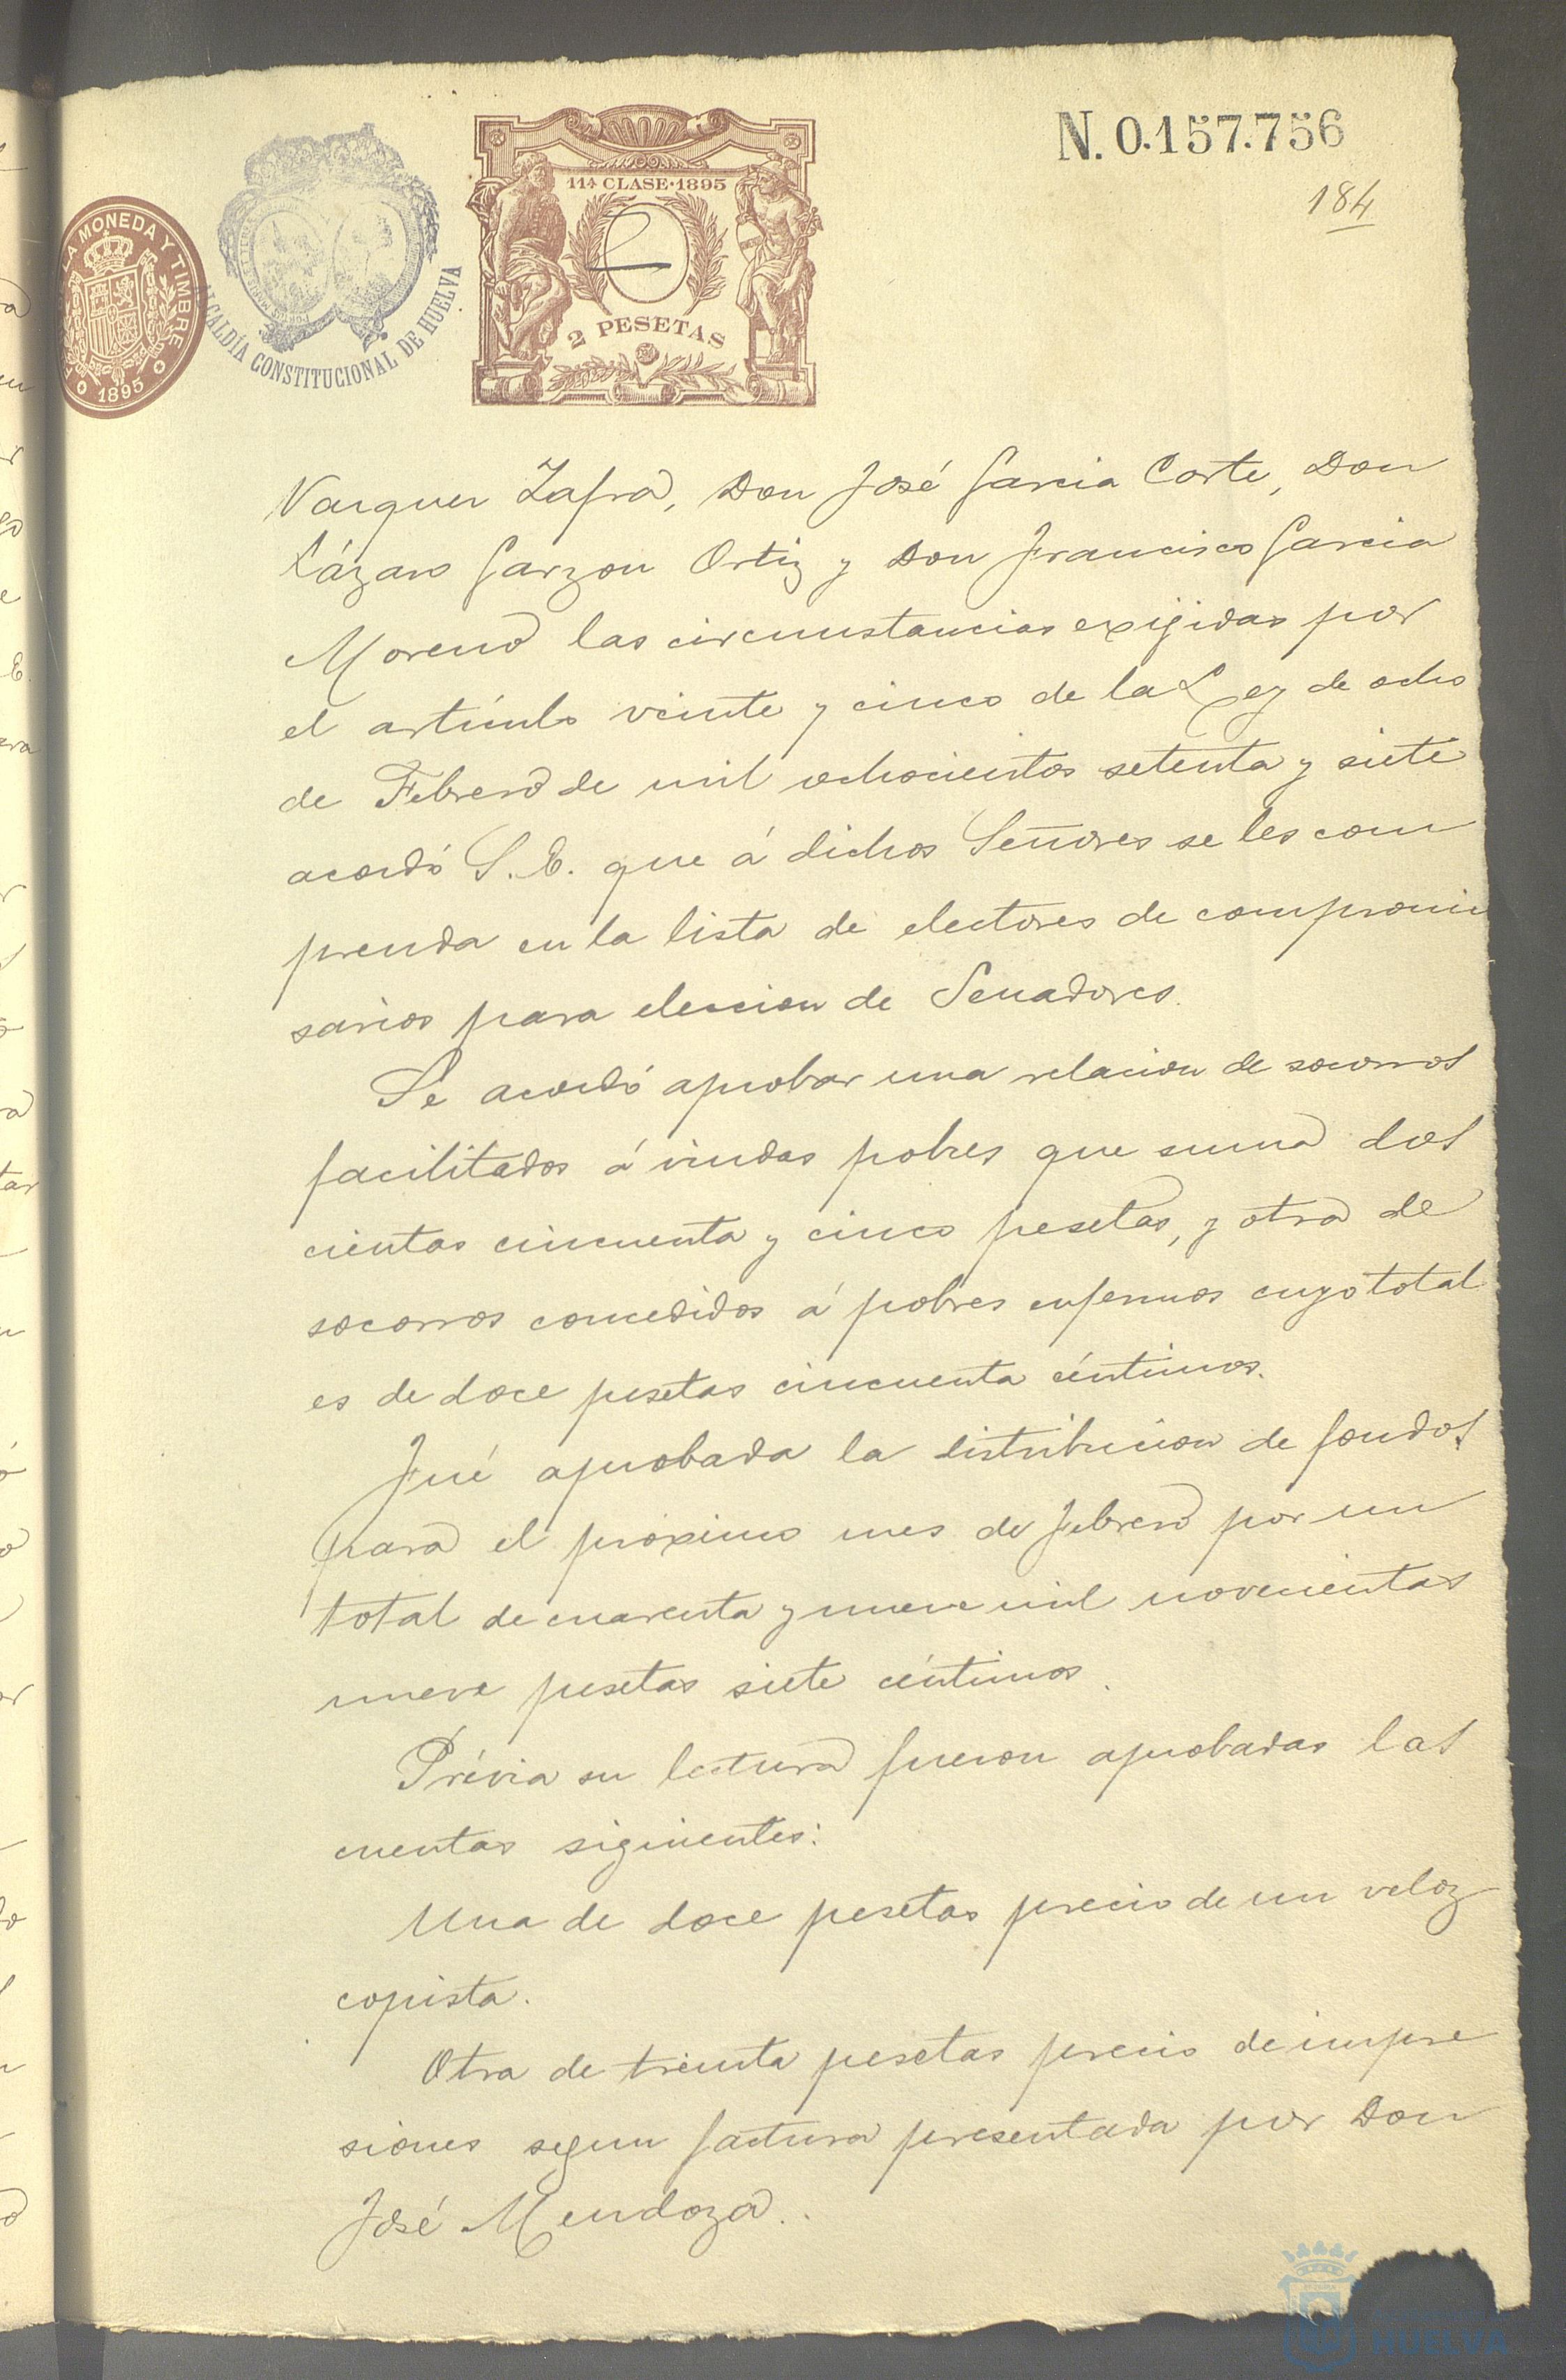 N. 0.157.756
184
LA MONEDA Y TIMBRE
1895
ALCALDÍA CONSTITUCIONAL DE HUELVA
11ª CLASE·1895
2 PESETAS
Vazquez Zafra, Don José Garcia Corte, Don
Lázaro Garzon Ortiz y Don Francisco Garcia
Moreno las circunstancias exijidas por
el artículo veinte y cinco de la Ley de ocho
de Febrero de mil ochocientos setenta y siete
acordó S. E. que á dichos Señores se les com
prenda en la lista de electores de compromi
sarios para eleccion de Senadores.
Se acordó aprobar una relacion de socorros
facilitados á viudas pobres que suma dos
cientas cincuenta y cinco pesetas, y otra de
socorros concedidos á pobres enfermos cuyo total
es de doce pesetas cincuenta céntimos.
Fué aprobada la distribucion de fondos
para el próximo mes de Febrero por un
total de cuarenta y nueve mil novecientas
nueve pesetas siete céntimos.
Prévia su lectura fueron aprobadas las
cuentas siguientes:
Una de doce pesetas precio de un veloz
copista.
Otra de treinta pesetas precio de impre
siones segun factura presentada por Don
José Mendoza.
HUELVA